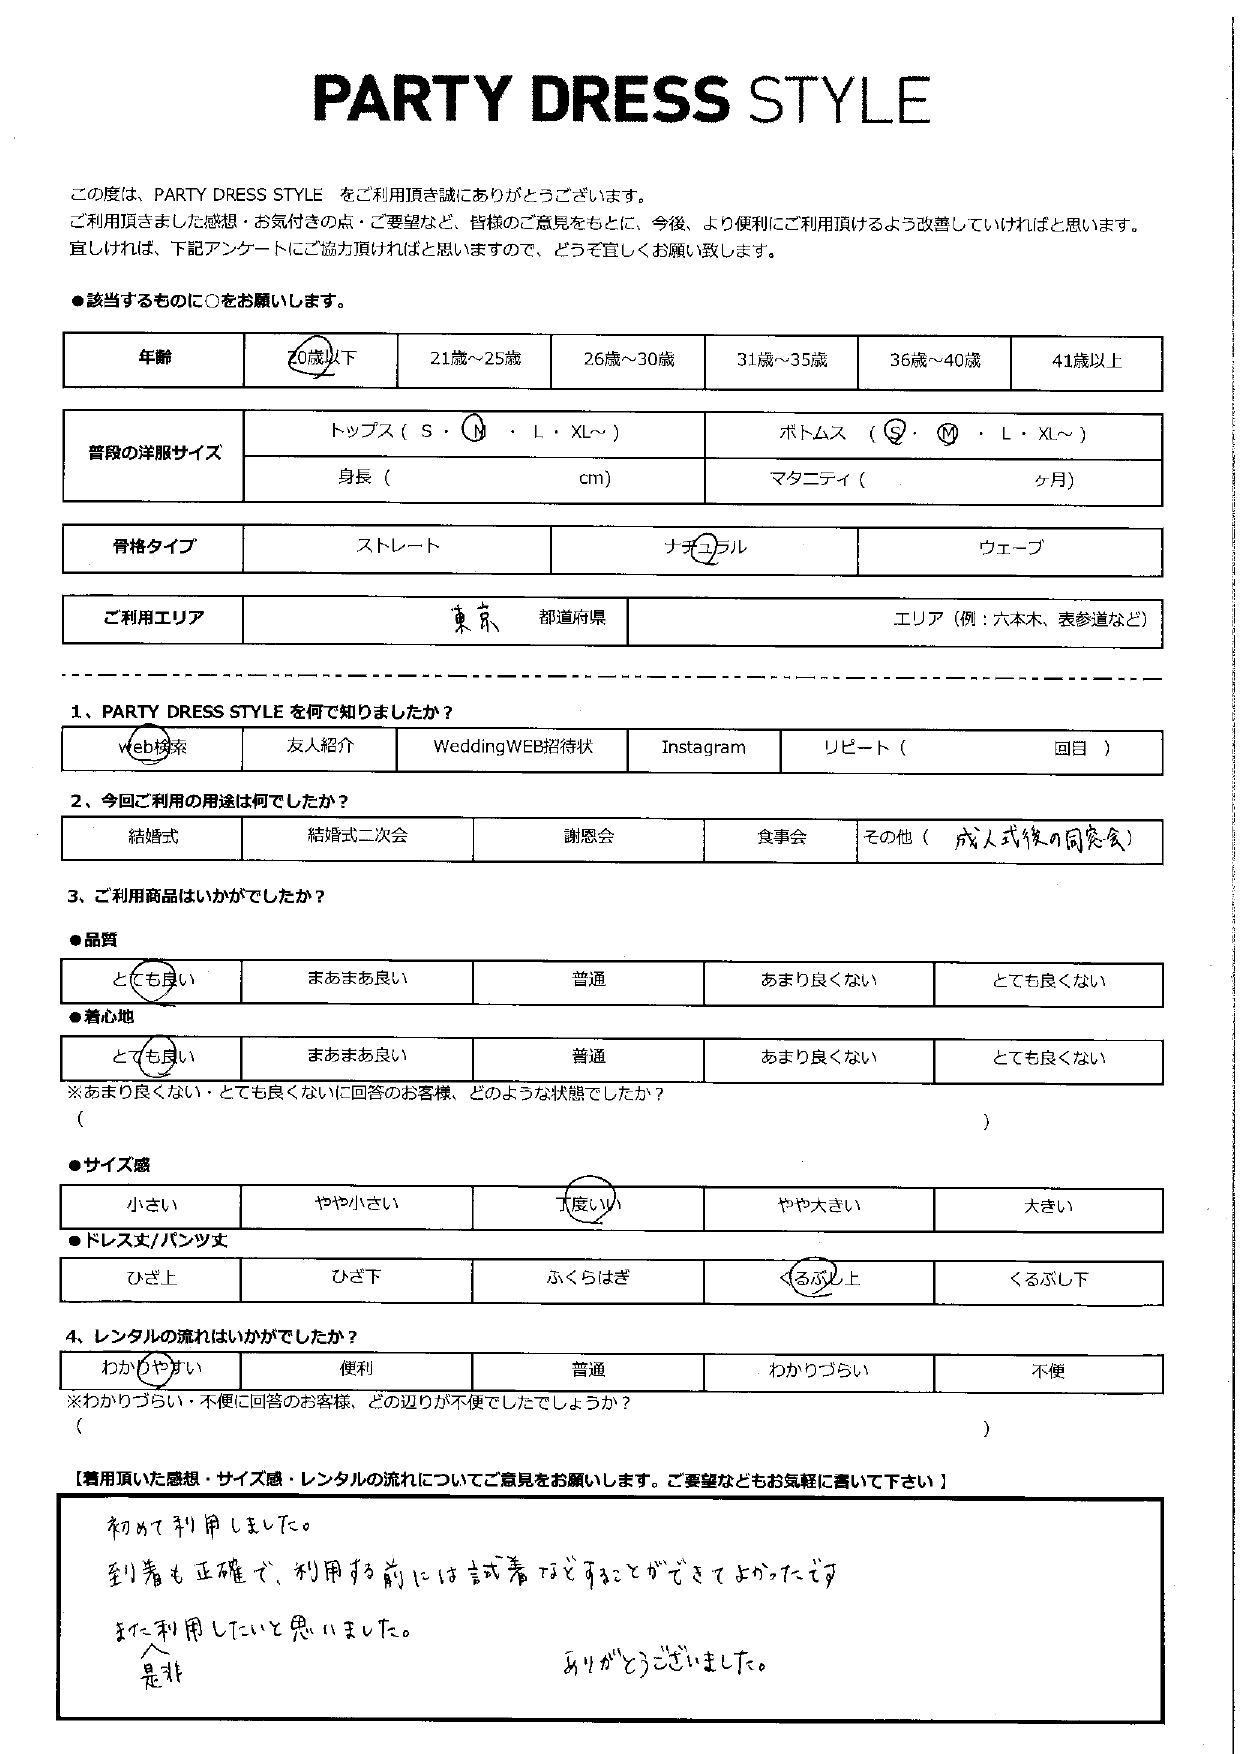 PARTY DRESS STYLE
この度は、PARTY DRESS STYLE をご利用頂き誠にありがとうございます。
ご利用頂きました感想・お気付きの点・ご要望など、皆様のご意見をもとに、今後、より便利にご利用頂けるよう改善していければと思います。
宜しければ、下記アンケートにご協力頂ければと思いますので、どうぞ宜しくお願い致します。
●該当するものに○をお願いします。
年齢 20歳以下 21歳～25歳 26歳～30歳 31歳～35歳 36歳～40歳 41歳以上
普段の洋服サイズ
トップス ( S ・ M ・ L ・ XL～ ) ボトムス ( S ・ M ・ L ・ XL～ )
身長 ( cm) マタニティ ( ヶ月)
骨格タイプ ストレート ナチュラル ウェーブ
ご利用エリア 東京 都道府県 エリア（例：六本木、表参道など）
1、PARTY DRESS STYLE を何で知りましたか？
web検索 友人紹介 WeddingWEB招待状 Instagram リピート ( 回目 )
2、今回ご利用の用途は何でしたか？
結婚式 結婚式二次会 謝恩会 食事会 その他 ( 成人式後の同窓会)
3、ご利用商品はいかがでしたか？
●品質
とても良い まあまあ良い 普通 あまり良くない とても良くない
●着心地
とても良い まあまあ良い 普通 あまり良くない とても良くない
※あまり良くない・とても良くないに回答のお客様、どのような状態でしたか？
( )
●サイズ感
小さい やや小さい 丁度いい やや大きい 大きい
●ドレス丈/パンツ丈
ひざ上 ひざ下 ふくらはぎ くるぶし上 くるぶし下
4、レンタルの流れはいかがでしたか？
わかりやすい 便利 普通 わかりづらい 不便
※わかりづらい・不便に回答のお客様、どの辺りが不便でしたでしょうか？
( )
【着用頂いた感想・サイズ感・レンタルの流れについてご意見をお願いします。ご要望などもお気軽に書いて下さい 】
初めて利用しました。
到着も正確で、利用する前には試着などすることができてよかったです
また利用したいと思いました。
是非
ありがとうございました。